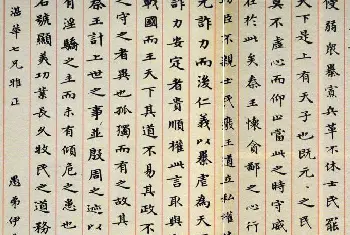 侵弱眾暴寡兵革不休士民罷
天下是上有天子也既元々之民
莫不虛心而仰上當此之時守威
在於此矣秦王懷貪鄙之心行
功臣不親士民廢王道立私權
先詐力而後仁義以暴虐為天
詐力安定者貴順權此言取與
戰國而王天下其道不易其政不
之守之者異也孤獨而有之故其
秦王計上世之事並殷周之迹以
有淫驕之主而未有傾危之患也
名號顯美功業長久牧民之道務
溫華七兄雅正
愚弟伊